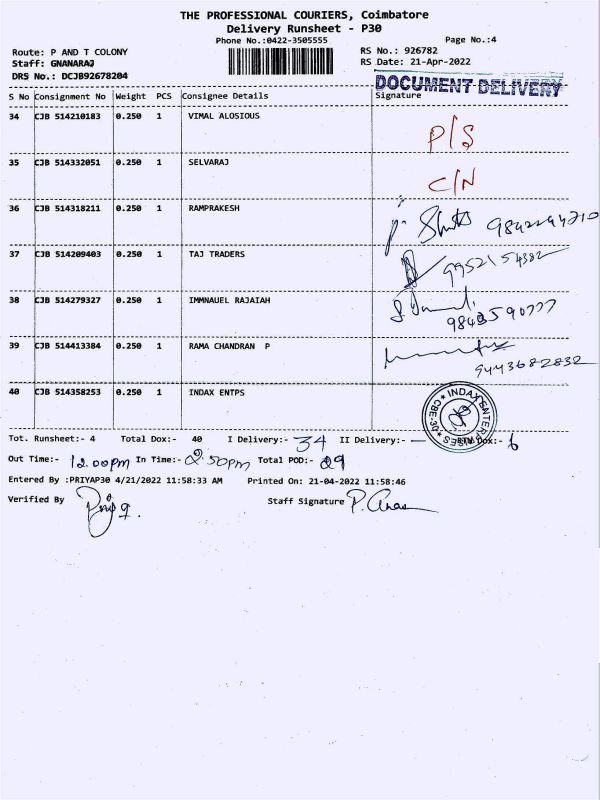 THE PROFESSIONAL COURIERS, Coimbatore
Delivery Runsheet - P30
Phone No.:0422-3505555
Page No.:4
Route: P AND T COLONY
RS No.: 926782
Staff: GNANARAJ
RS Date: 21-Apr-2022
DRS No.: DCJB92678204
DOCUMENT DELIVERY
S No Consignment No Weight PCS Consignee Details Signature
34 CJB 514210183 0.250 1 VIMAL ALOSIOUS P/S
35 CJB 514332051 0.250 1 SELVARAJ C/N
36 CJB 514318211 0.250 1 RAMPRAKESH
37 CJB 514209403 0.250 1 TAJ TRADERS 9952154382
38 CJB 514279327 0.250 1 IMMNAUEL RAJAIAH
39 CJB 514413384 0.250 1 RAMA CHANDRAN P 9443682832
40 CJB 514358253 0.250 1 INDAX ENTPS
INDAX ENTERPRISES CBE-30
Tot. Runsheet:- 4 Total Dox:- 40 I Delivery:- 34 II Delivery:- — RTN Dox:- 6
Out Time:- 12.00pm In Time:- 2.50pm Total POD:- 29
Entered By :PRIYAP30 4/21/2022 11:58:33 AM Printed On: 21-04-2022 11:58:46
Verified By Staff Signature